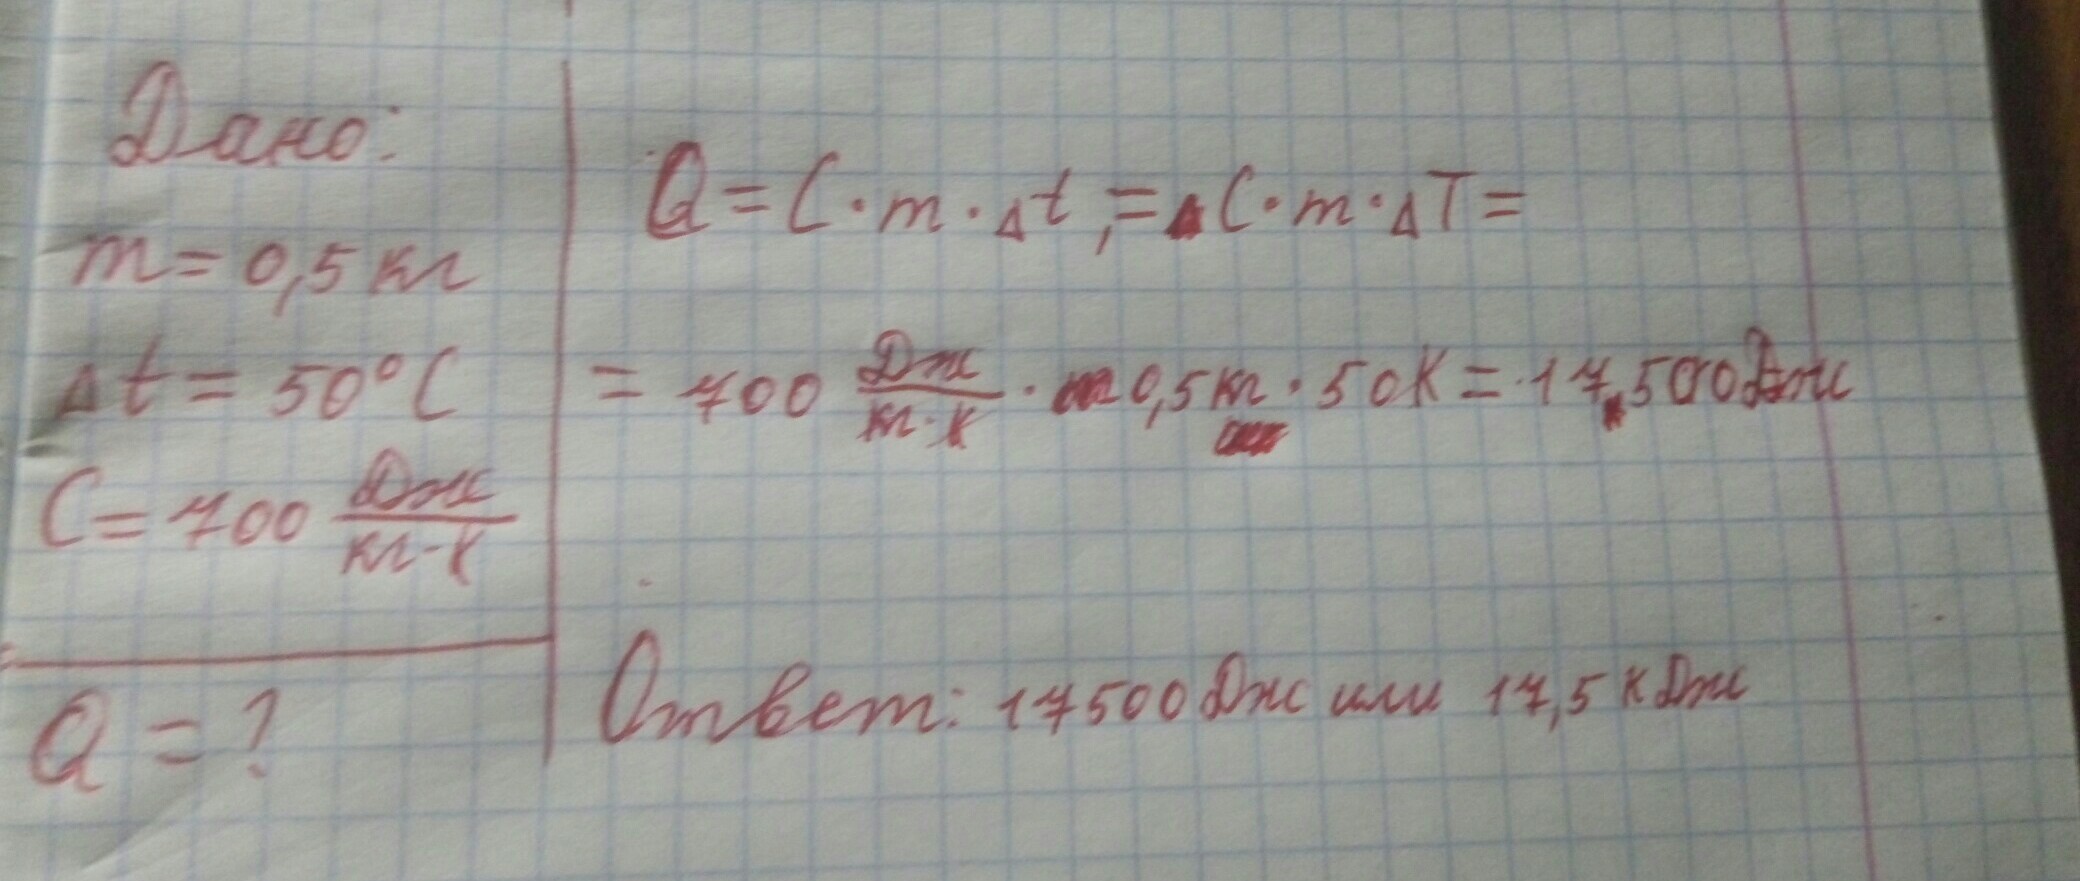 Дано:
m = 0,5 кг
Δt = 50°C
C = 700 Дж/кг·К
Q = ?
Q = C · m · Δt, = C · m · ΔT =
= 700 Дж/кг·К · 0,5 кг · 50К = 17500Дж
Ответ: 17500 Дж или 17,5 кДж